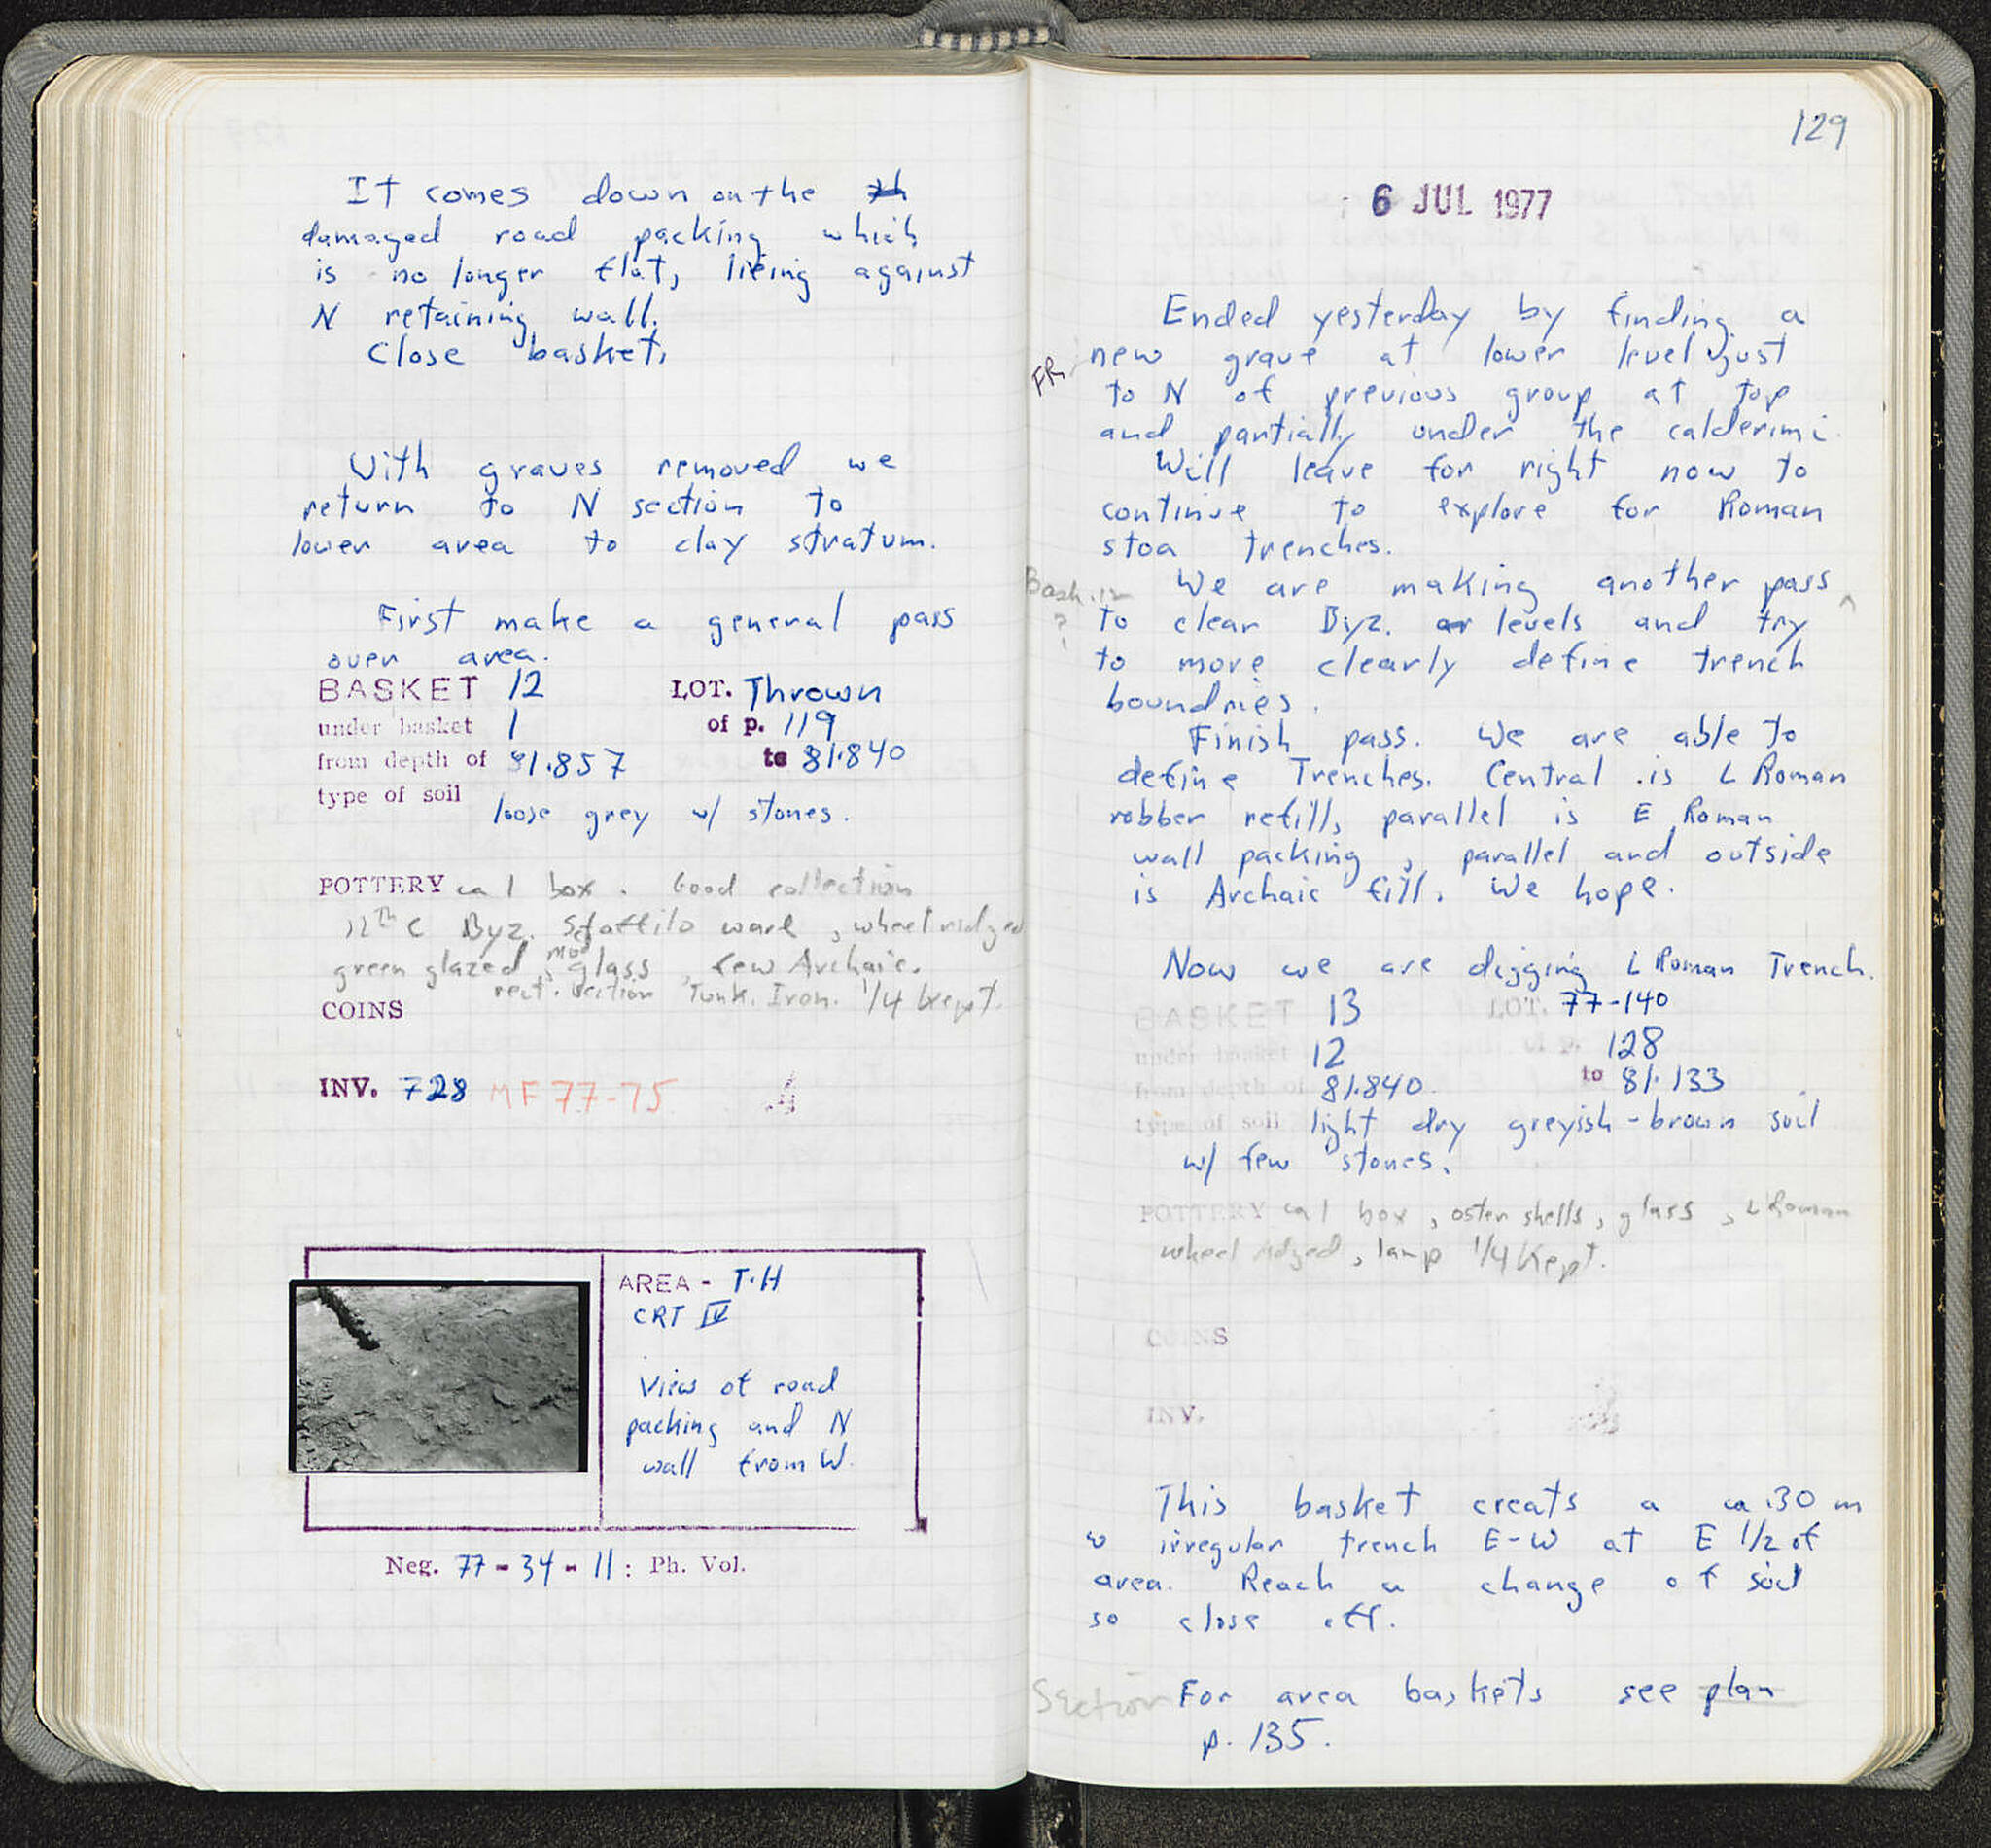 It comes down on the
damaged road packing which
is no longer flat, lieing against
N retaining wall.
Close basket.
With graves removed we
return to N section to
lower area to clay stratum.
First make a general pass
over area.
BASKET 12 LOT. Thrown
under basket 1 of p. 119
from depth of 81.857 to 81.840
type of soil
loose grey w/ stones.
POTTERY ca 1 box. Good collection
12th C Byz. Sgraffito ware, wheel ridged
green glazed, glass, few Archaic.
rect. section Iron. 1/4 kept.
COINS
INV. 728 MF 77-75
AREA - T.H
CRT IV
View of road
packing and N
wall from W.
Neg. 77-34-11: Ph. Vol.
129
6 JUL 1977
Ended yesterday by finding a
FR. new grave at lower level just
to N of previous group at top
and partially under the calderimi
Will leave for right now to
continue to explore for Roman
stoa trenches.
We are making another pass
? to clear Byz. levels and try
to more clearly define trench
boundries.
Finish pass. We are able to
define Trenches. Central is L Roman
robber refill, parallel is E Roman
wall packing, parallel and outside
is Archaic fill. We hope.
Now we are digging L Roman Trench.
BASKET 13 LOT. 77-140
under basket 12 of p. 128
from depth of 81.840 to 81.133
type of soil light dry greyish-brown soil
w/ few stones.
POTTERY ca 1 box, oster shells, glass, L Roman
wheel ridged, lamp 1/4 Kept.
COINS
INV.
This basket creats a ca .30 m
w irregular trench E-W at E 1/2 of
area. Reach a change of soil
so close off.
Section For area baskets see plan
p. 135.